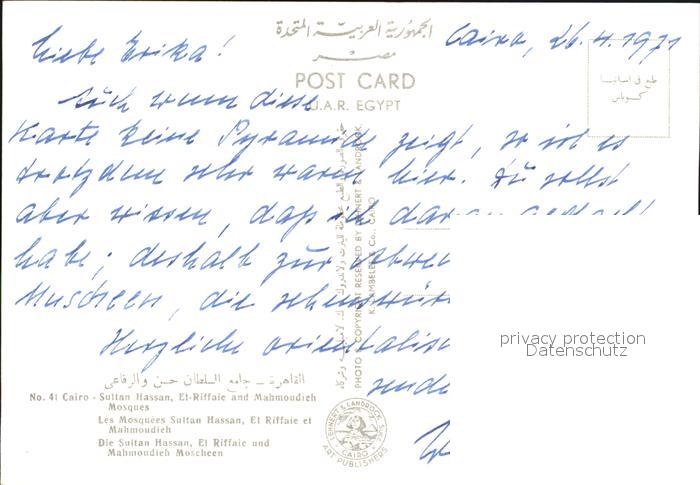 الجمهورية العربية المتحدة
مصر
POST CARD
U.A.R. EGYPT
Cairo, 26.4.1971
طبع في اسبانيا
Liebe Erika!
Auch wenn diese
Karte keine Pyramide zeigt, so ist es
trotzdem sehr warm hier. Du sollst
aber wissen, daß ich daran gedacht
habe; deshalb zur
Muscheen, die
Herzliche
sende
PHOTO & COPYRIGHT RESERVED BY LEHNERT & LANDROCK
K. LAMBELET & Co., CAIRO
القاهرة ـ جامع السلطان حسن والرفاعي
No. 41 Cairo - Sultan Hassan, El-Riffaie and Mahmoudieh
Mosques
Les Mosquées Sultan Hassan, El Riffaie et
Mahmoudieh
Die Sultan Hassan, El Riffaie und
Mahmoudieh Moscheen
LEHNERT & LANDROCK, SUCC.
CAIRO
ART PUBLISHERS
privacy protection
Datenschutz